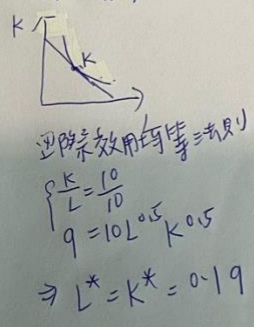 K
K
邊際效用均等法則
K/L = 10/10
q = 10L^0.5 K^0.5
⇒ L* = K* = 0.1q